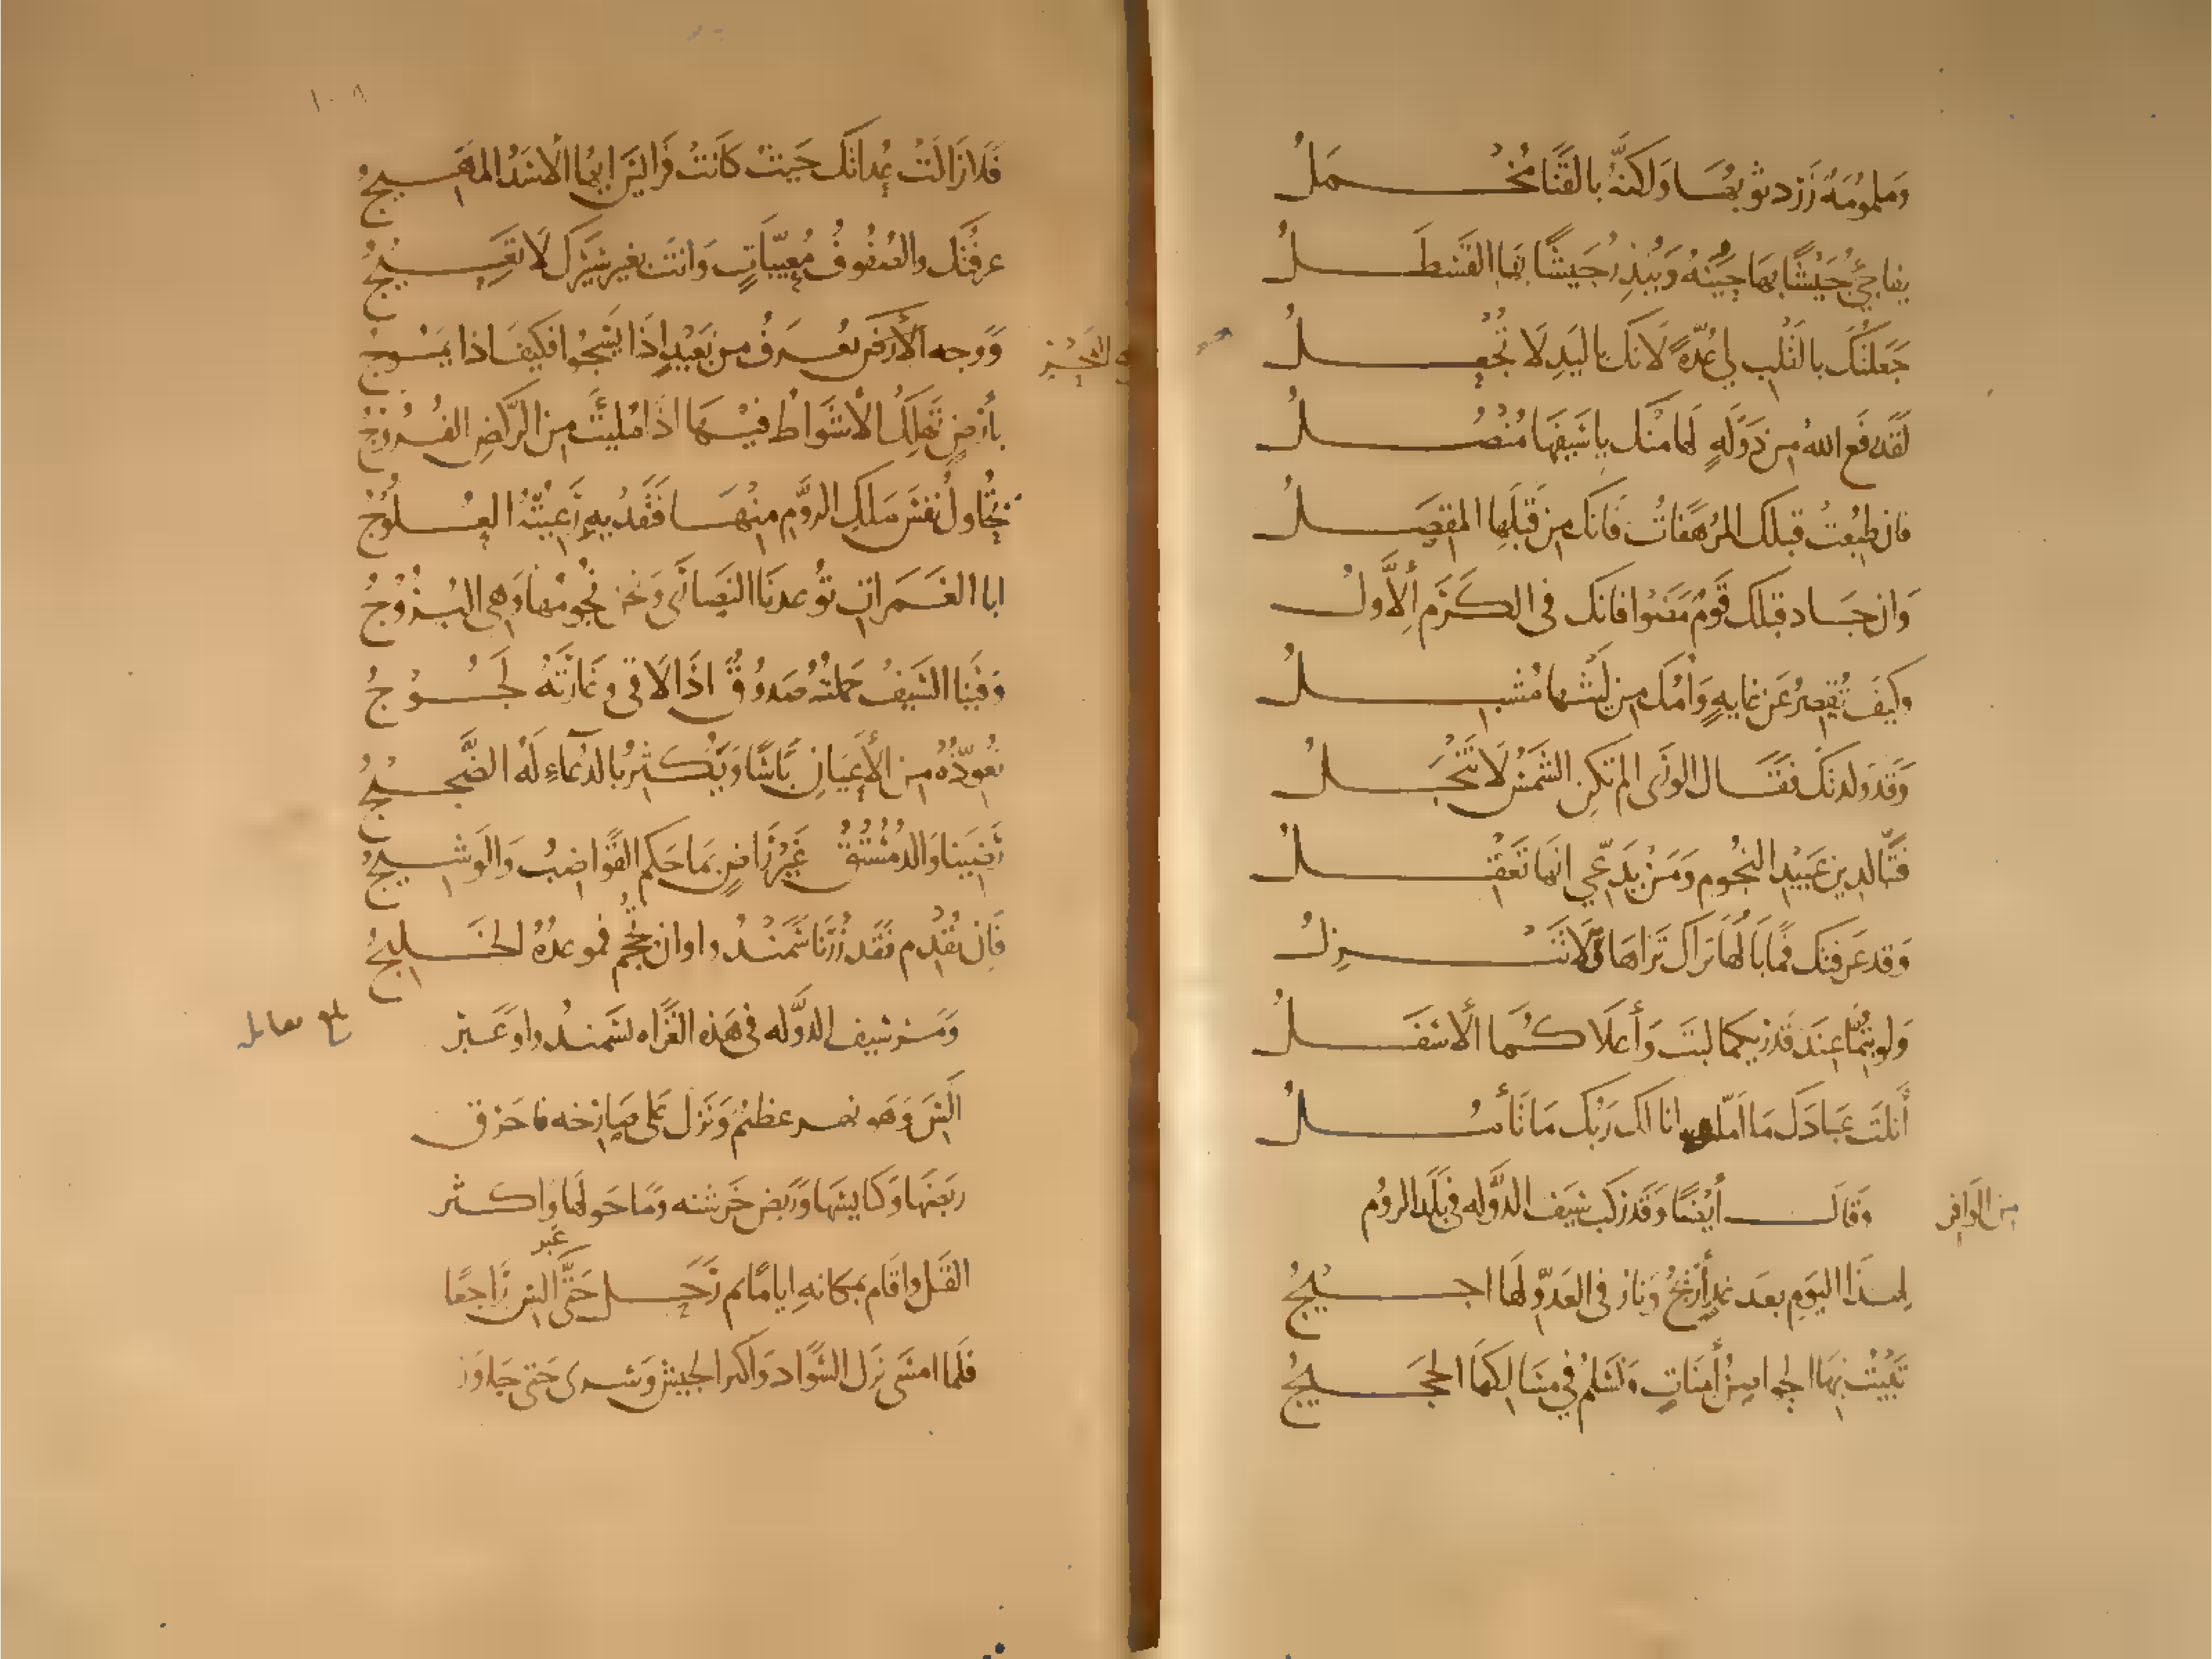 وَملمُومَةٌ زَرَد ثوبهُــا وَلكنّهُ بالقَنَا مُخْــمَلُ
يفاجئُ جَيْشًا بهَا حَيْنُهُ وَيُنذِرُ جَيشًا بهَا القَسْطَــلُ
جَعَلتُكَ بالقَلْب لي عُدّةً لَانكَ باليَدِ لَا تُجْعَــلُ
لقَد رفَع الله مِن دَوْلَةٍ لهَا منْكَ يا سَيفَهَا مُنْصُــلُ
فان طُبِعَتْ قبلكَ المُرْهَفاتُ فَانكَ مِن قَبْلِهَا المِقصَــلُ
وَان جَــاد قبلكَ قَومٌ مَضَوا فانكَ فى الكَرَم الأَوَّلُ
وكيفَ تُقصِرُ عَن غايةٍ وَامُّكَ مِن لَيْثها مُشبِــلُ
وَقَد وَلَدتكَ فقَــال الوَرَى الم تكنِ الشمسُ لَا تُنْجَــلُ
فَتَبًّا لدين عَبيْدِ النجُومِ وَمَنْ يَدّعِي انهَا تَعْقِــلُ
وَقد عَرَفتكَ فَمَا بَالُهَا تَرَاكَ تَرَاهَا وَلَا تَنْــزِلُ
وَلَو بتُّمَا عِندَ قَدْرَيكما لبتَّ وَأعلَاكُــمَا الأسْفَــلُ
أَنَلتَ عبَادَكَ مَا امّلوا انالكَ رَبُّكَ مَا تَأمُــلُ
من الوَافر
وَقَالَــ أيْضًا وَقَد ركبَ سَيفُ الدَّوله فى بَلَد الرُوم
لِهــذَا اليَومِ بعدَ غدٍ أَرِيْجُ وَنار فى العَدوِّ لهَا اجــيْجُ
تَبيْتُ بهَا الحواصِنُ أَمنَاتٍ وَتَسْلمُ في مسَالكهَا الحَجــيْجُ
١٠٨
فَلَا زَالَتْ عُداتكَ حَيثُ كَانَتْ فَرايسَ ايّها الأسَدُ المَهِــيجُ
عرفتُكَ والصُفُوفُ مُعبّيَاتٍ وَانتَ بغيرِ سَيْركَ لَا تَعِــيْجُ
وَوَجه الأَرض يُعــرَفُ من بَعيْدٍ اذَا يَسْجُوا فكيفَ اذا يَمُــوجُ
بأَرضٍ تَهلكُ الأشْوَاطُ فيْــهَا اذَا مُلِئَتْ مِن الرَّكضِ الفُــرُوْجُ
تُحَاولُ نفسَ مَلكِ الرُّومِ منْهَــا فَتَفْديهِ رَعِيّتُهُ العُــلُوجُ
ابا الغَــمَراتِ تُوعدنَا النَصَارَى وَنحنُ نُجُومُهَا وَهي البُــرُوْجُ
وَفِيْنَا السَيفُ حَملتُهُ صَدُوْقٌ اذَا لَاقى وغَارَتُهُ لَجُــوْجُ
نُعوّذُهُ مِن الأَعيَانِ بَأسًا وَيَكــثرُ بالدُعَاءِ لَهُ الضّجــيْجُ
رَضِيْنَا وَالدُمُسْتُقُ غَيْرُ رَاضٍ بمَا حَكمَ القَوَاضِبُ وَالوَشيــجُ
فَان يُقْدِم فَقَد زُرْنَا سَمَنْــدُوا وان يُحْجِم فموعدُهُ الخَــليجُ
وَمــر سَيف الدَّوله فى هَذه الغَزَاه لسَمندُوا وَعَــبَر
بلغ مقابله
آلِسَ وَهو نهــر عظيمٌ وَنزَل على صَارخه فاحَرَق
ربَضَهَا وَكنايسهَا وَرَبض خَرشنه وَمَا حَولهَا وَاكــثر
القَتل وَاقَام بمكانهِ ايامًا ثم رَحَــل حَتَّى عَبر آلِس رَاجعًا
فَلمَا امسَى نَزل السَّوَاد وَاكثر الجيش وَسَــرى حَتى جَاوَز